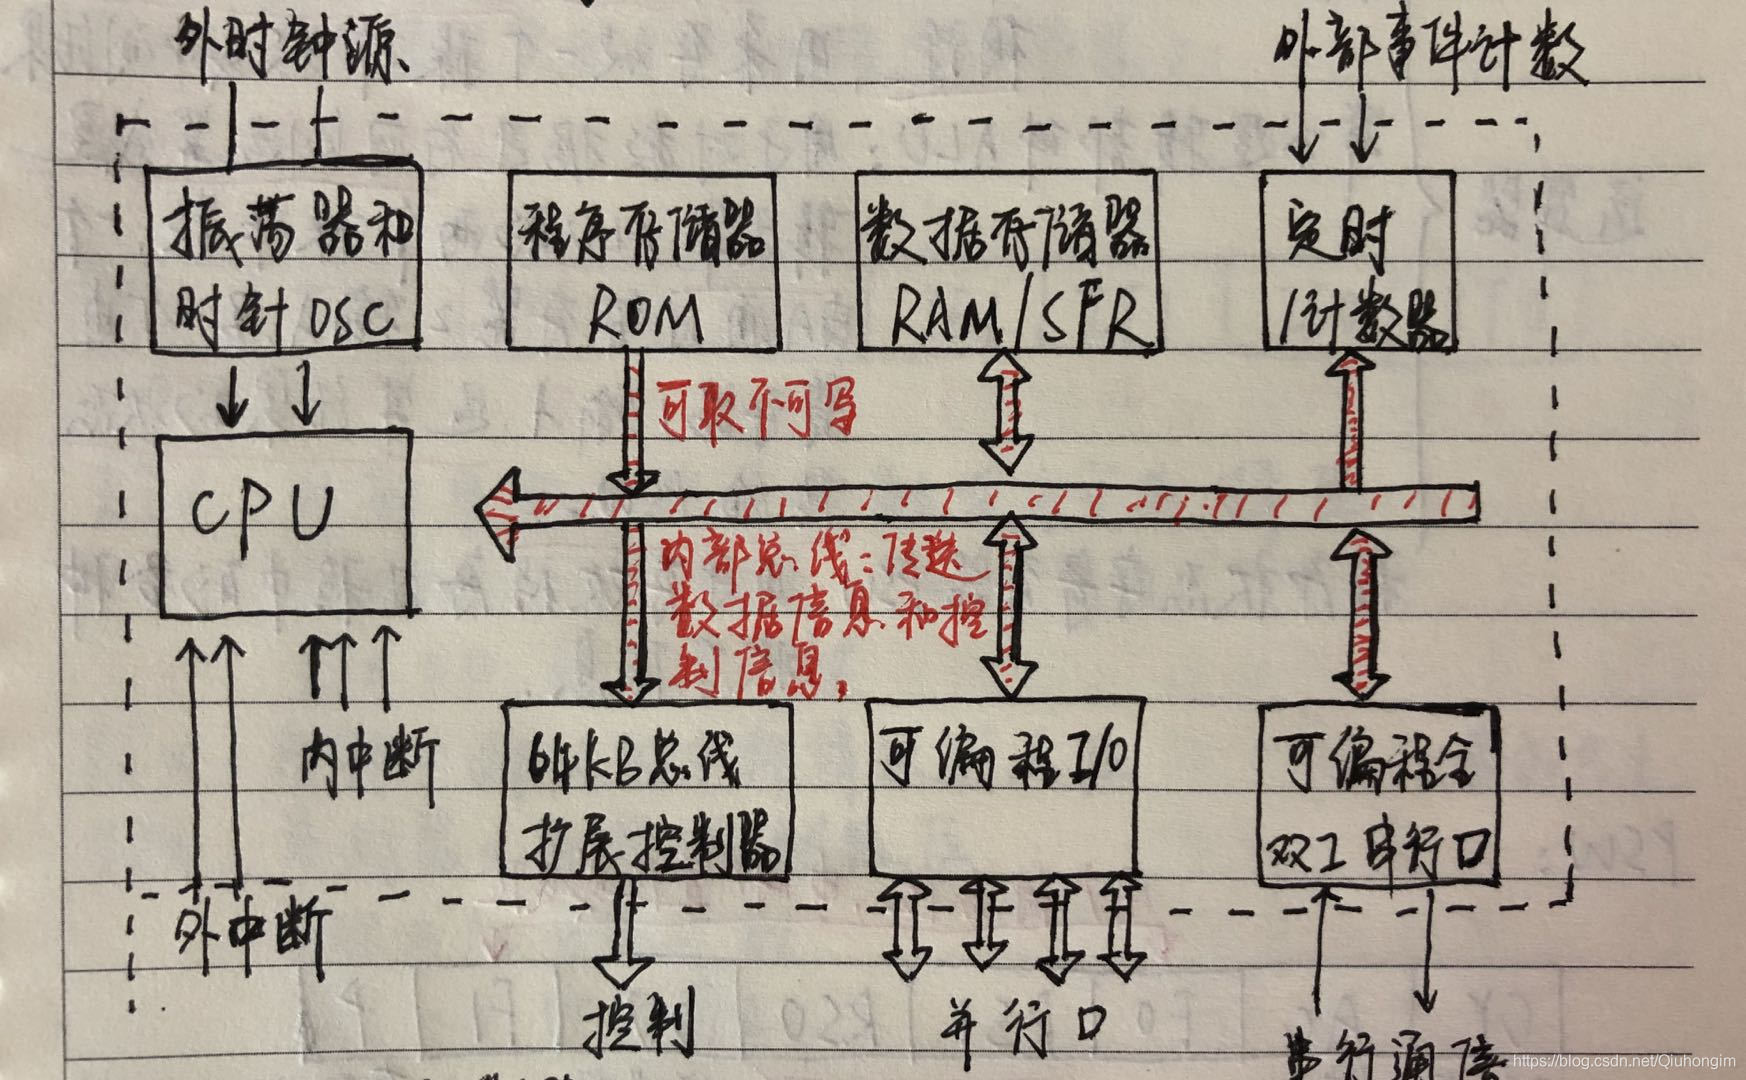 外时钟源
外部事件计数
振荡器和
时针OSC
程序存储器
ROM
数据存储器
RAM/SFR
定时
/计数器
可取不可写
CPU
内部总线：传送
数据信息和控
制信息，
内中断
外中断
64KB总线
扩展控制器
可编程I/O
可编程全
双工串行口
控制
并行口
串行通信
https://blog.csdn.net/Qiuhongim